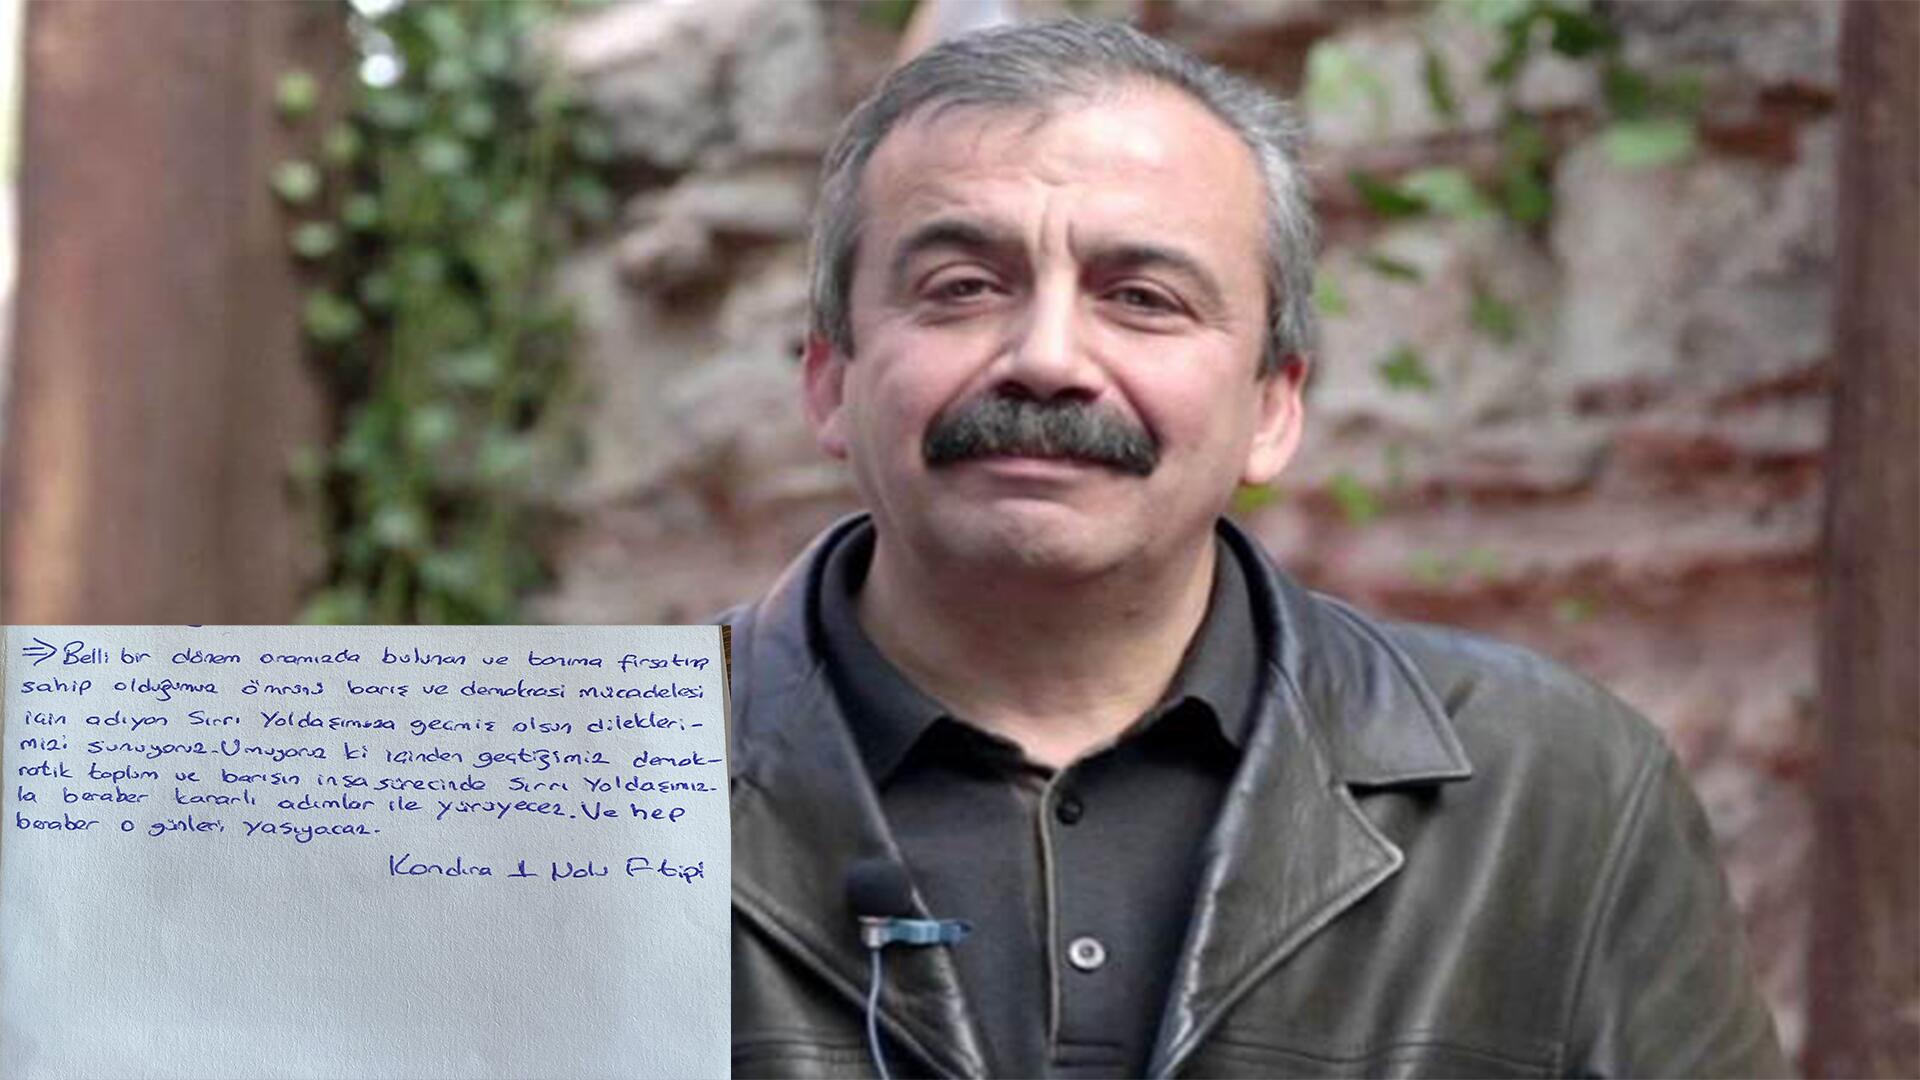 ⇒ Belli bir dönem aramızda bulunan ve tanıma fırsatına
sahip olduğumuz ömrünü barış ve demokrasi mücadelesi
için adıyan Sırrı Yoldaşımıza geçmiş olsun dilekleri-
mizi sunuyoruz. Umuyoruz ki içinden geçtiğimiz demok-
ratik toplum ve barışın inşa sürecinde Sırrı Yoldaşımız-
la beraber kararlı adımlar ile yürüyecez. Ve hep
beraber o günleri yaşıyacaz.
Kandıra 1 Nolu F tipi